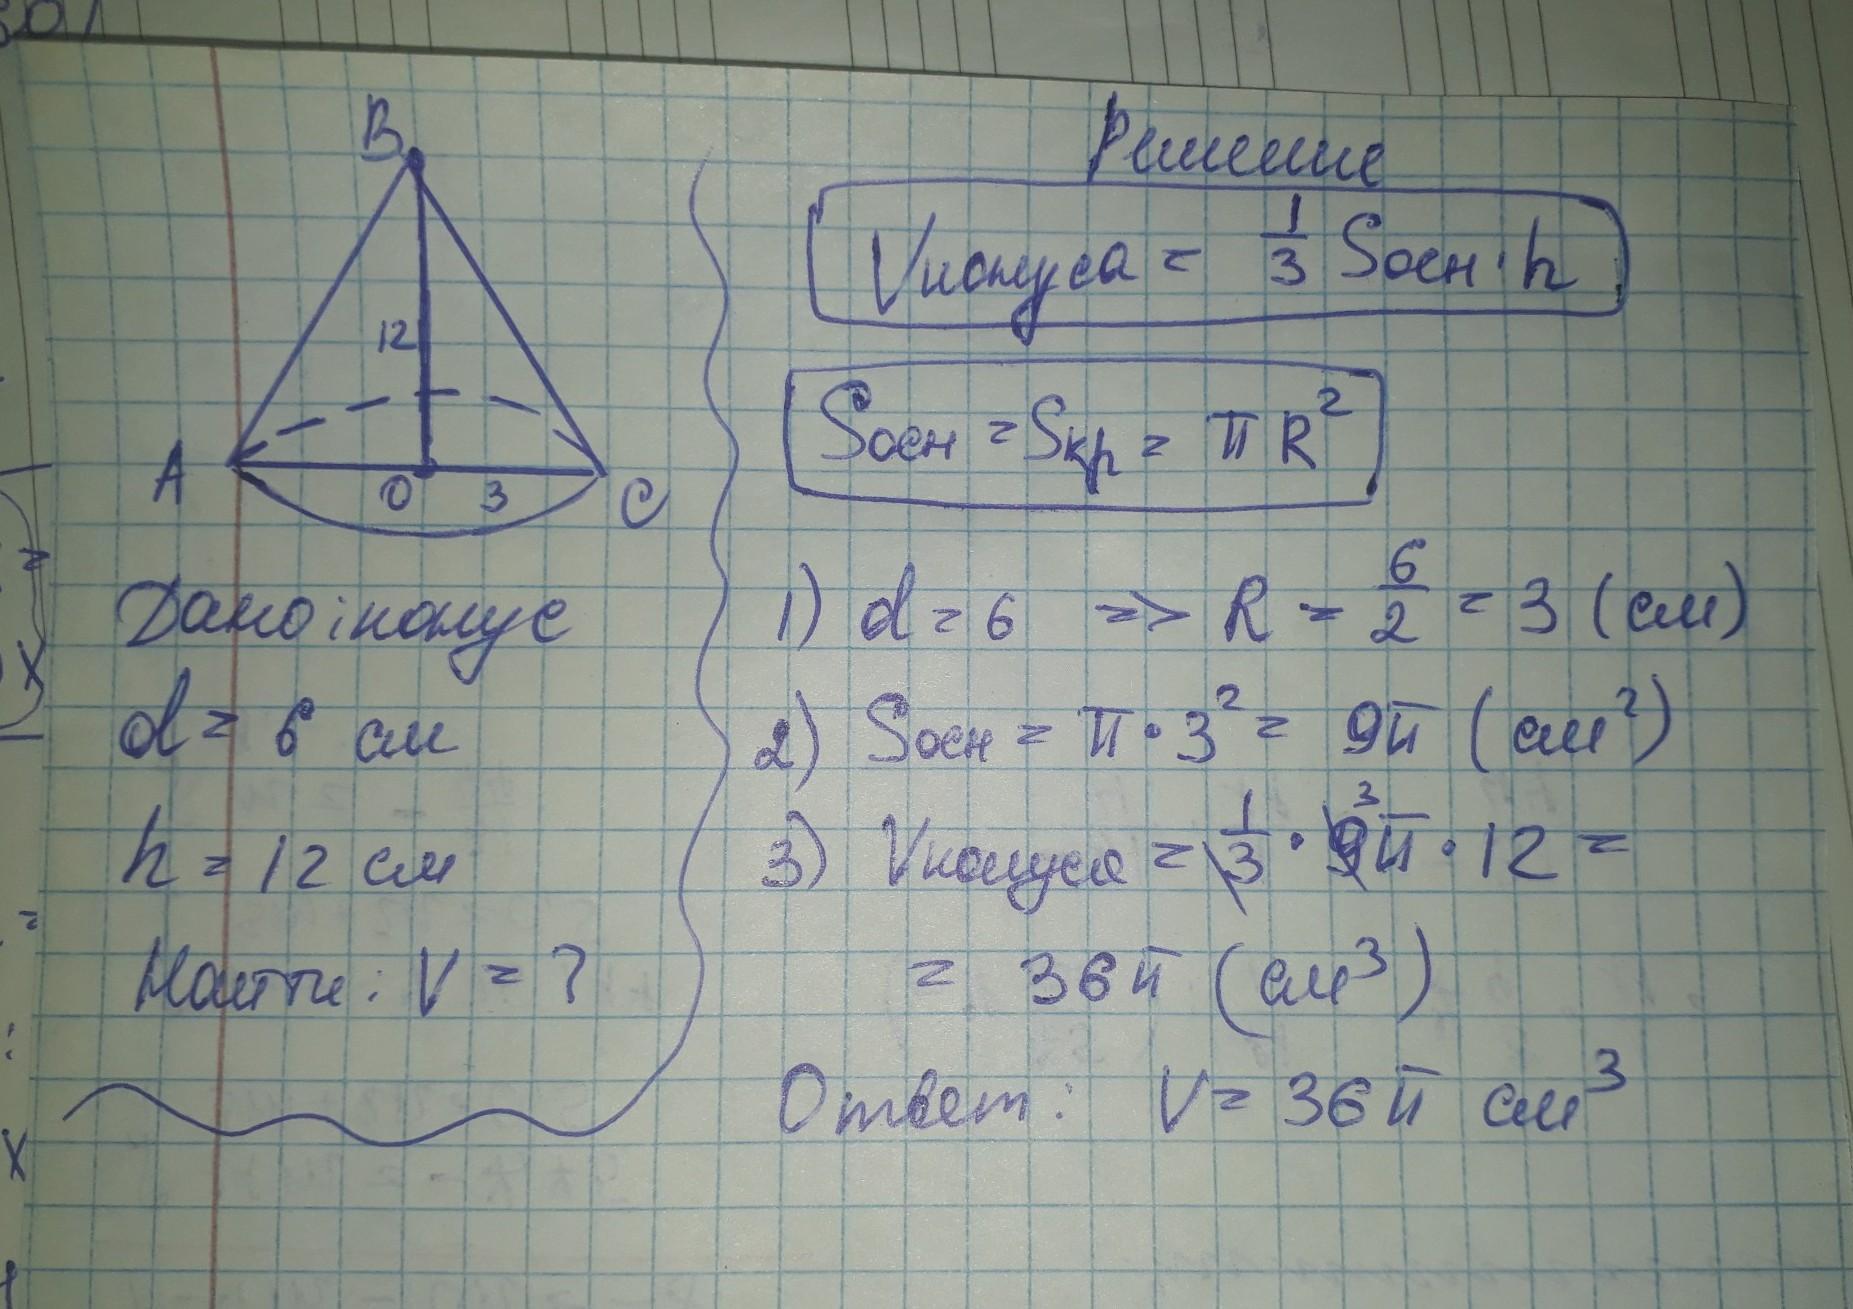 B
12
A
O 3 C
Дано: конус
d = 6 см
h = 12 см
Найти: V = ?
Решение
Vконуса = 1/3 Sосн · h
Sосн = Sкр = πR²
1) d = 6 => R = 6/2 = 3 (см)
2) Sосн = π · 3² = 9π (см²)
3) Vконуса = 1/3 · 9³π · 12 =
= 36π (см³)
Ответ: V = 36π см³